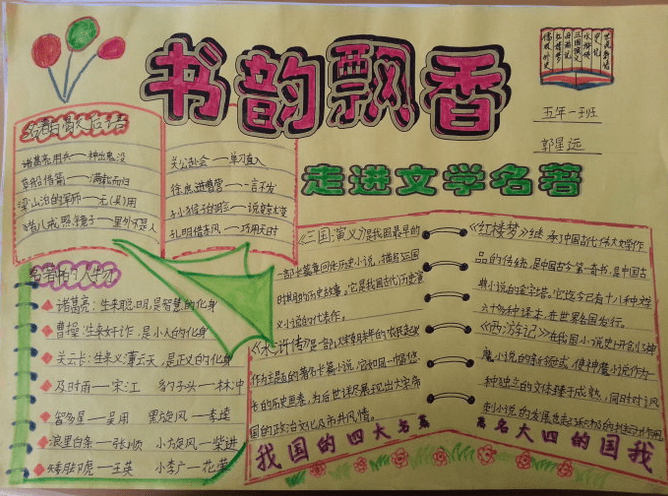 书韵飘香
走进文学名著
五年一班
郭星远
名著的歇后语
诸葛亮用兵——神出鬼没
草船借箭——满载而归
梁山泊的军师——无(吴)用
猪八戒照镜子——里外不是人
关公赴会——单刀直入
徐庶进曹营——一言不发
孙猴子的脸——说变就变
孔明借东风——巧用天时
名著中的人物
诸葛亮:生来聪明,是智慧的化身
曹操:生来奸诈,是小人的化身
关云长:生来义薄云天,是正义的化身
及时雨——宋江 豹子头——林冲
智多星——吴用 黑旋风——李逵
浪里白条——张顺 小旋风——柴进
矮脚虎——王英 小李广——花荣
《三国演义》是我国最早的
一部长篇章回体历史小说,描写三国
时期的历史故事。它是我国古代历史演
义小说的代表作。
《水浒传》是一部以
作为主题的著名长篇小说,它如同一幅悠
长的历史画卷,为后世详尽展现出大宋帝
国的政治文化及市井风情。
我国的四大名著
《红楼梦》继承了中国古代伟大文学作
品的传统,是中国古今第一奇书,是中国古
典小说的金字塔。它迄今已有十八种文字
六十多种译本,在世界各国发行。
《西游记》在我国小说史上开创了神
魔小说的新领域,使神魔小说作为
一种独立的文体臻于成熟,同时对讽
刺小说的发展也起了积极的
著名大四的国我